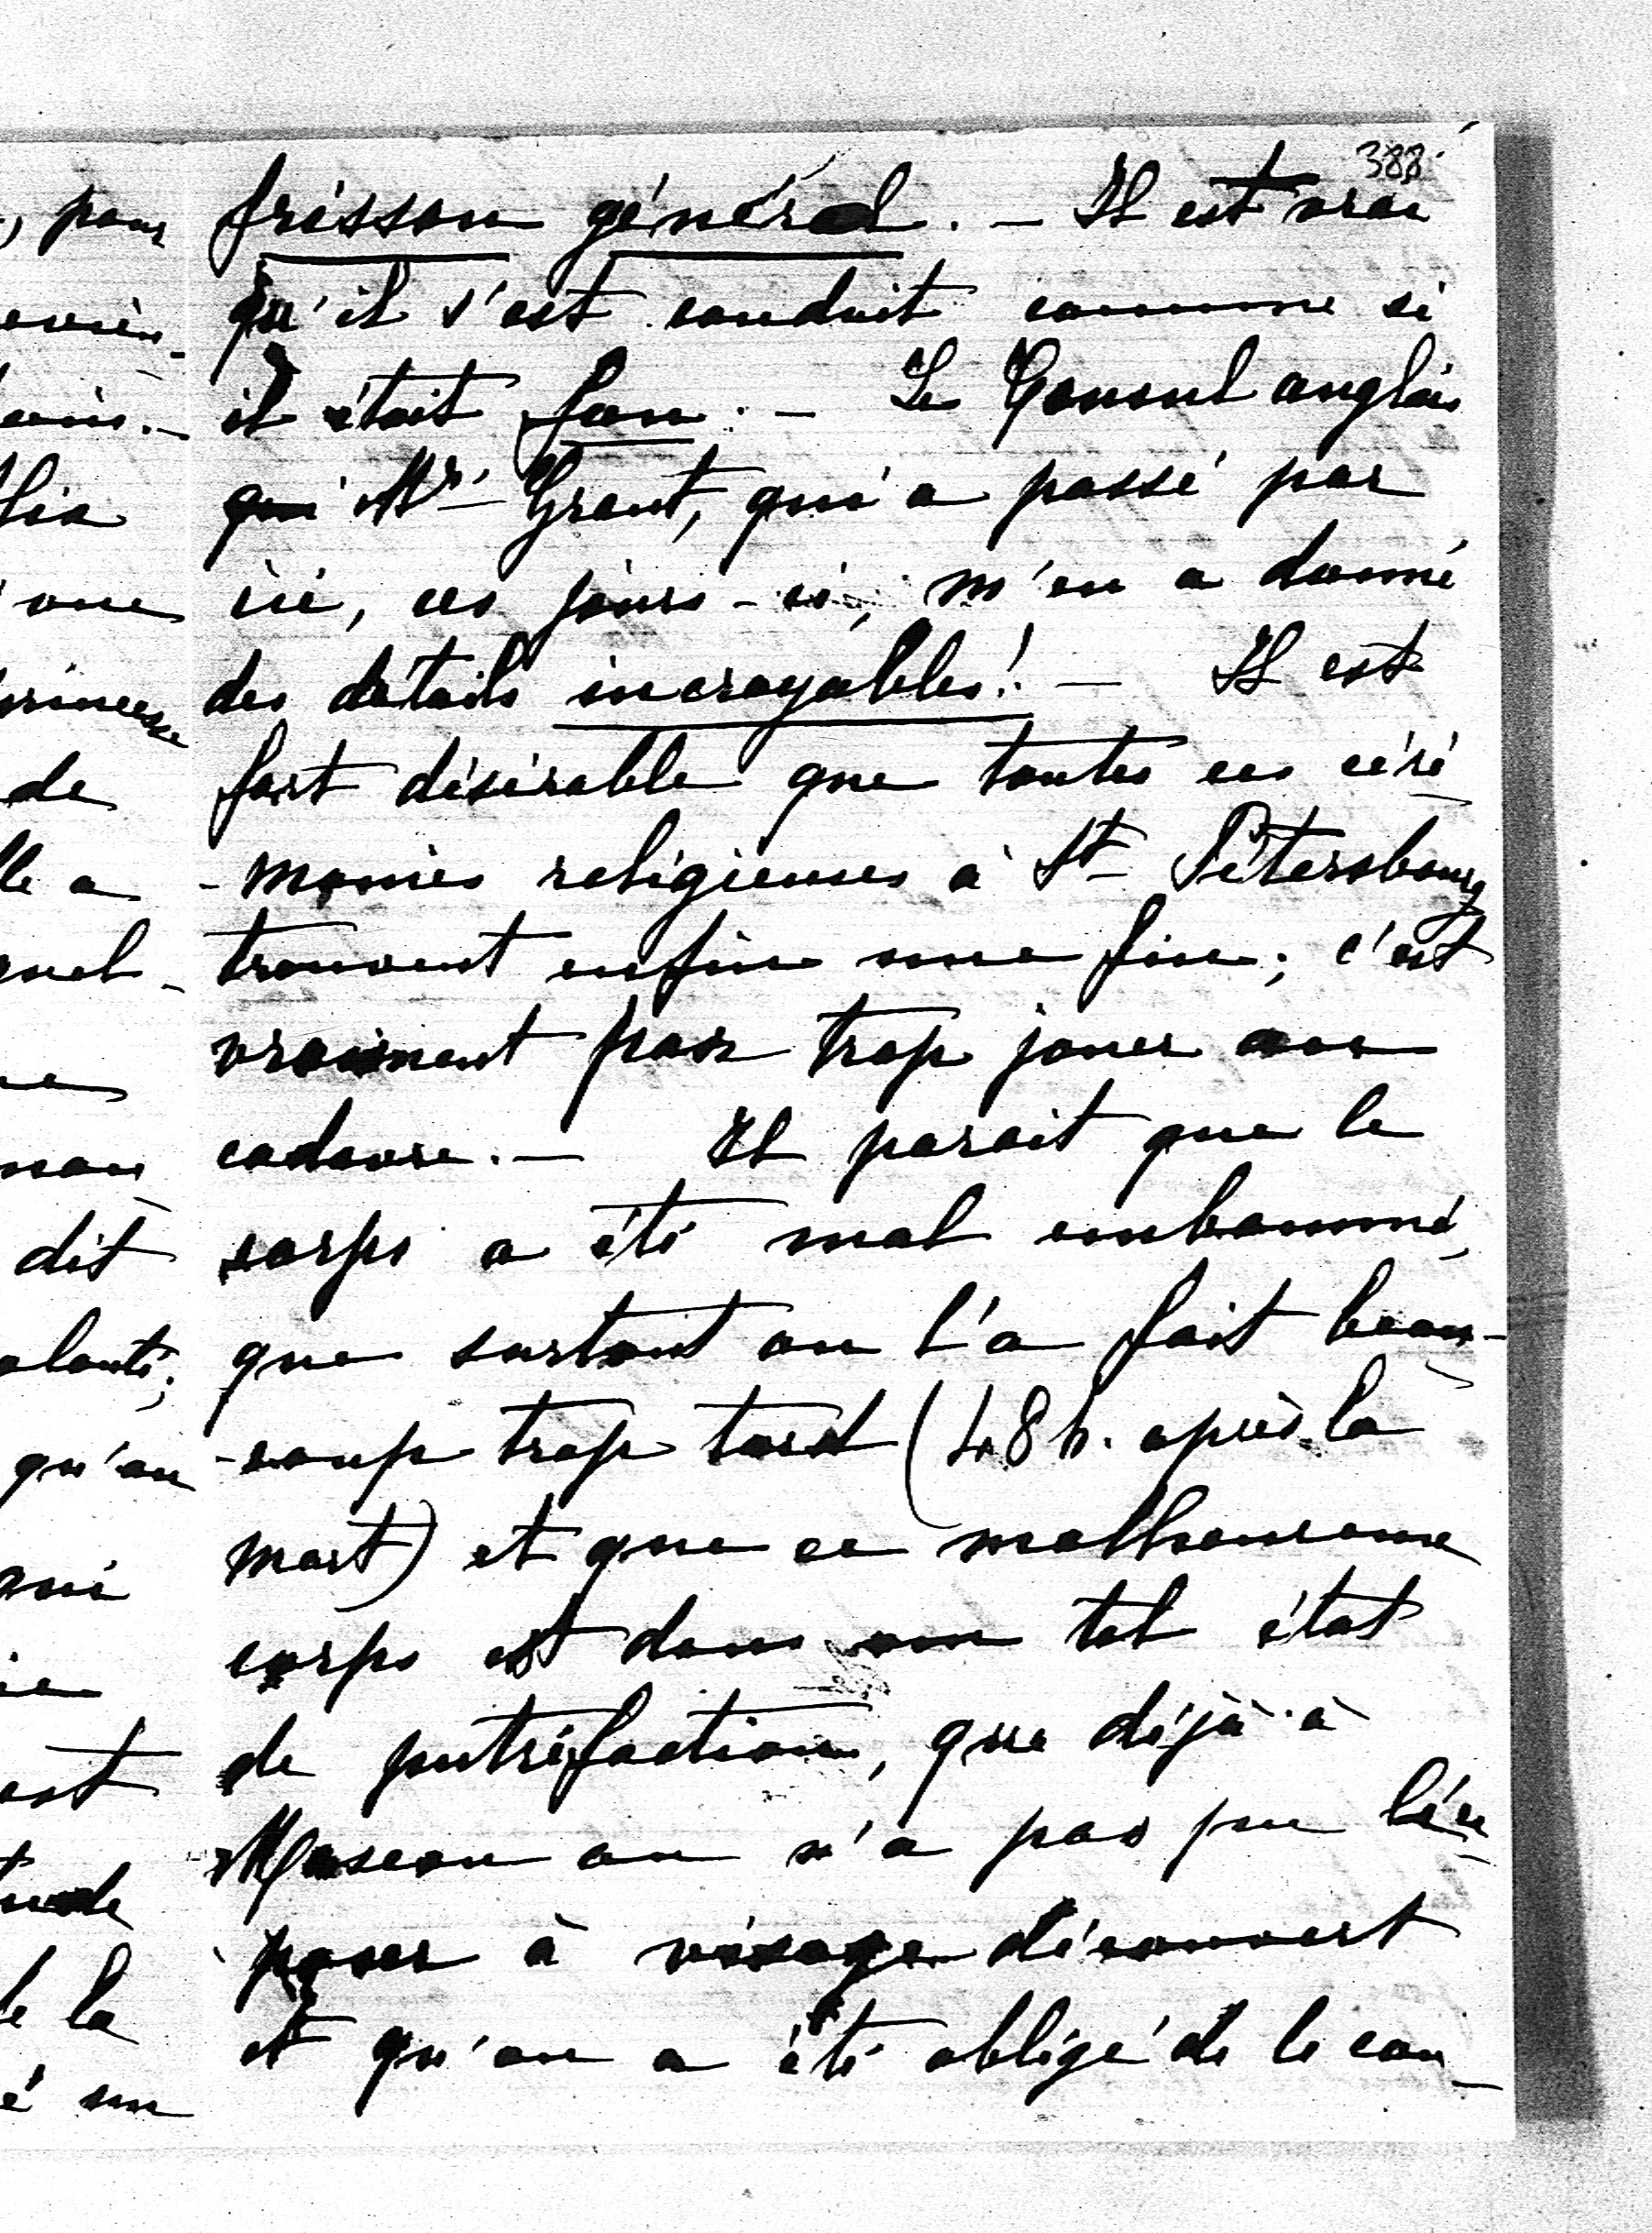 388
frisson général. - Il est vrai
qu'il s'est conduit comme si
il était fou. - Le Consul anglais
qui Mr Grant, qui a passé par
ici, ces jours-ci, m'en a donné
des détails incroyables! - Il est
fort désirable que toutes ces céré
-monies religieuses à St Pétersbourg
trouvent enfin une fin; c'est
vraiment par trop jouer au
cadavre. - Il parait que le
corps a été mal embaumé,
que surtout on l'a fait beau-
-coup trop tard (48 h. après la
mort) et que ce malheureux
corps est dans un tel état
de putréfaction, que déjà à
Moscou on n'a pas pu l'ex
poser à visage découvert
et qu'on a été obligé de le cou-